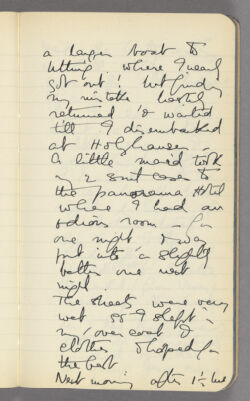 a larger boat to
Utting where I nearly
got out! but finding
my mistake hastily
returned & waited
till I disembarked
at Holzhausen –
A little maid took
my 2 suit cases to
the panorama Hotel
where I had an
odious room – for
one night & was
put into a slightly
better one next
night.
The sheets were very
wet so I slept in
my over coat &
clothes & hoped for
the best.
Next morning after 1½